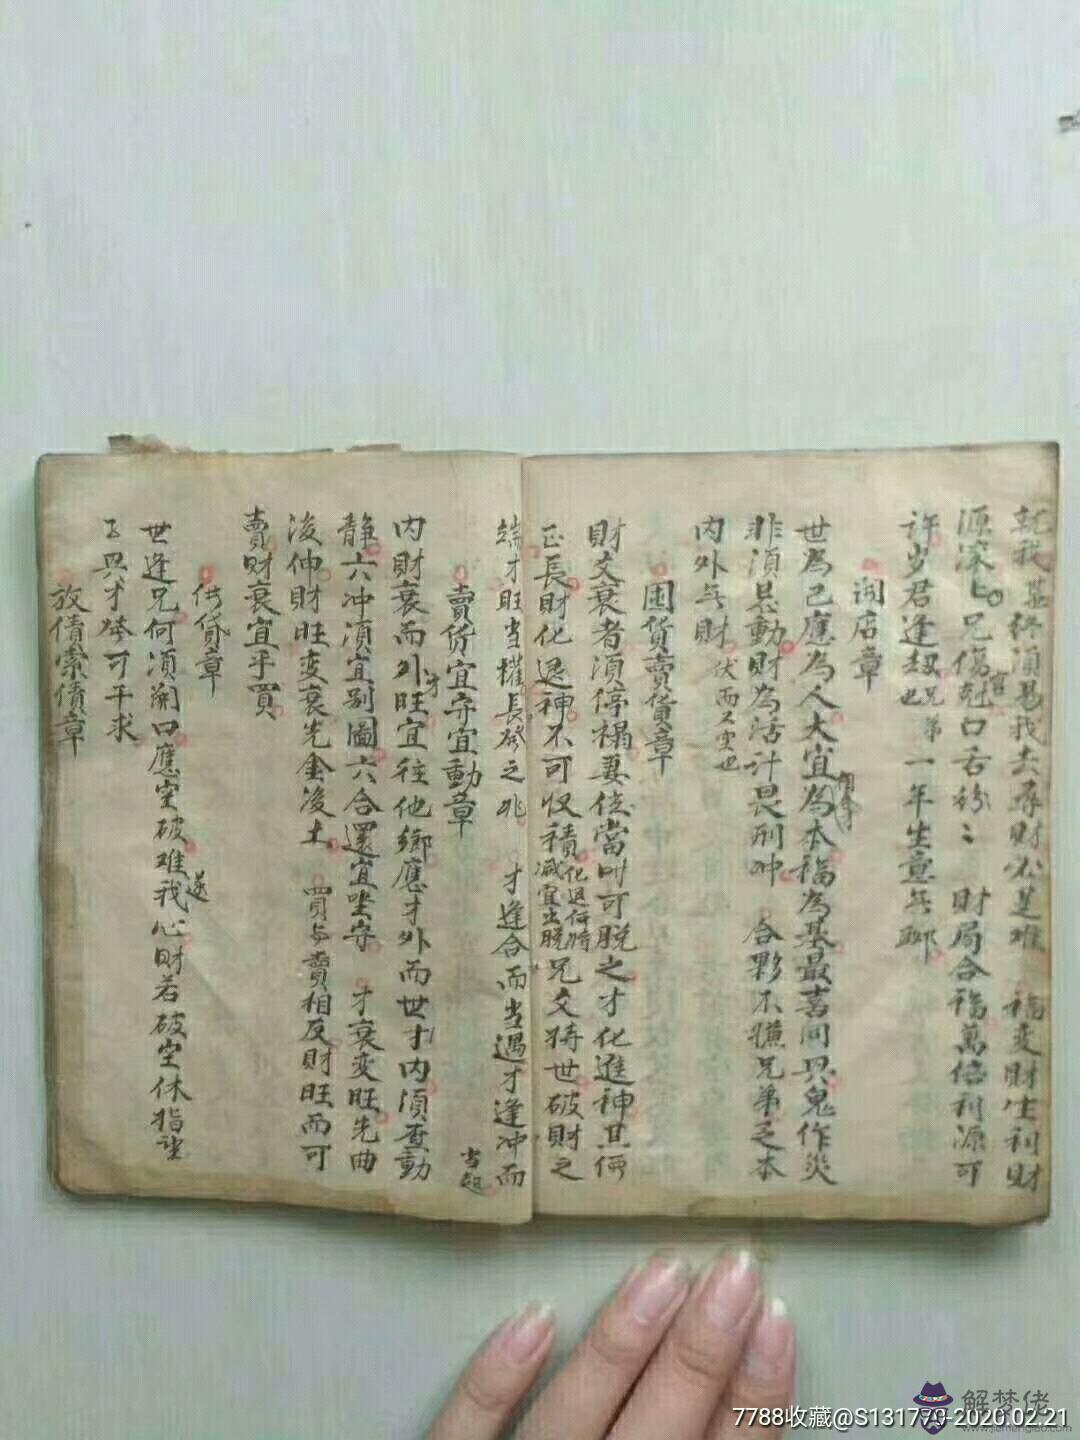 就我甚終須易我去尋財必是难　福変財生利財
源深上兄傷尅官口舌紛〻　財局合福萬倍利源可
許歲君逢刼兄弟也一年生意無聊
開店章
世為己應為人大宜為本福為基最喜同興鬼作災
非須忌動財為活计畏刑冲　合夥不嫌兄弟足本
内外無財伏而又空也
囤貨賣貨章
財爻衰者須停禍妻位當时可脱之才化進神其価
正長財化退神不可収積化退何時减宜出脱兄爻持世破財之
端才旺当權長發之兆　才逢合而当遇才逢冲而当起
賣货宜守宜動章
内財衰而外才旺宜往他鄉應才外而世才内須要動
静六冲須宜别圖六合還宜坐守　才衰变旺先曲
後伸財旺变衰先金後土　買与賣相反財旺而可
賣財衰宜乎買
借貸章
世逢兄何須開口應空破难遂我心財若破空休指望
興才發可乎求
放債索債章
7788收藏@S131779-2020.02.21
解梦佬
www.jiemenglao.com